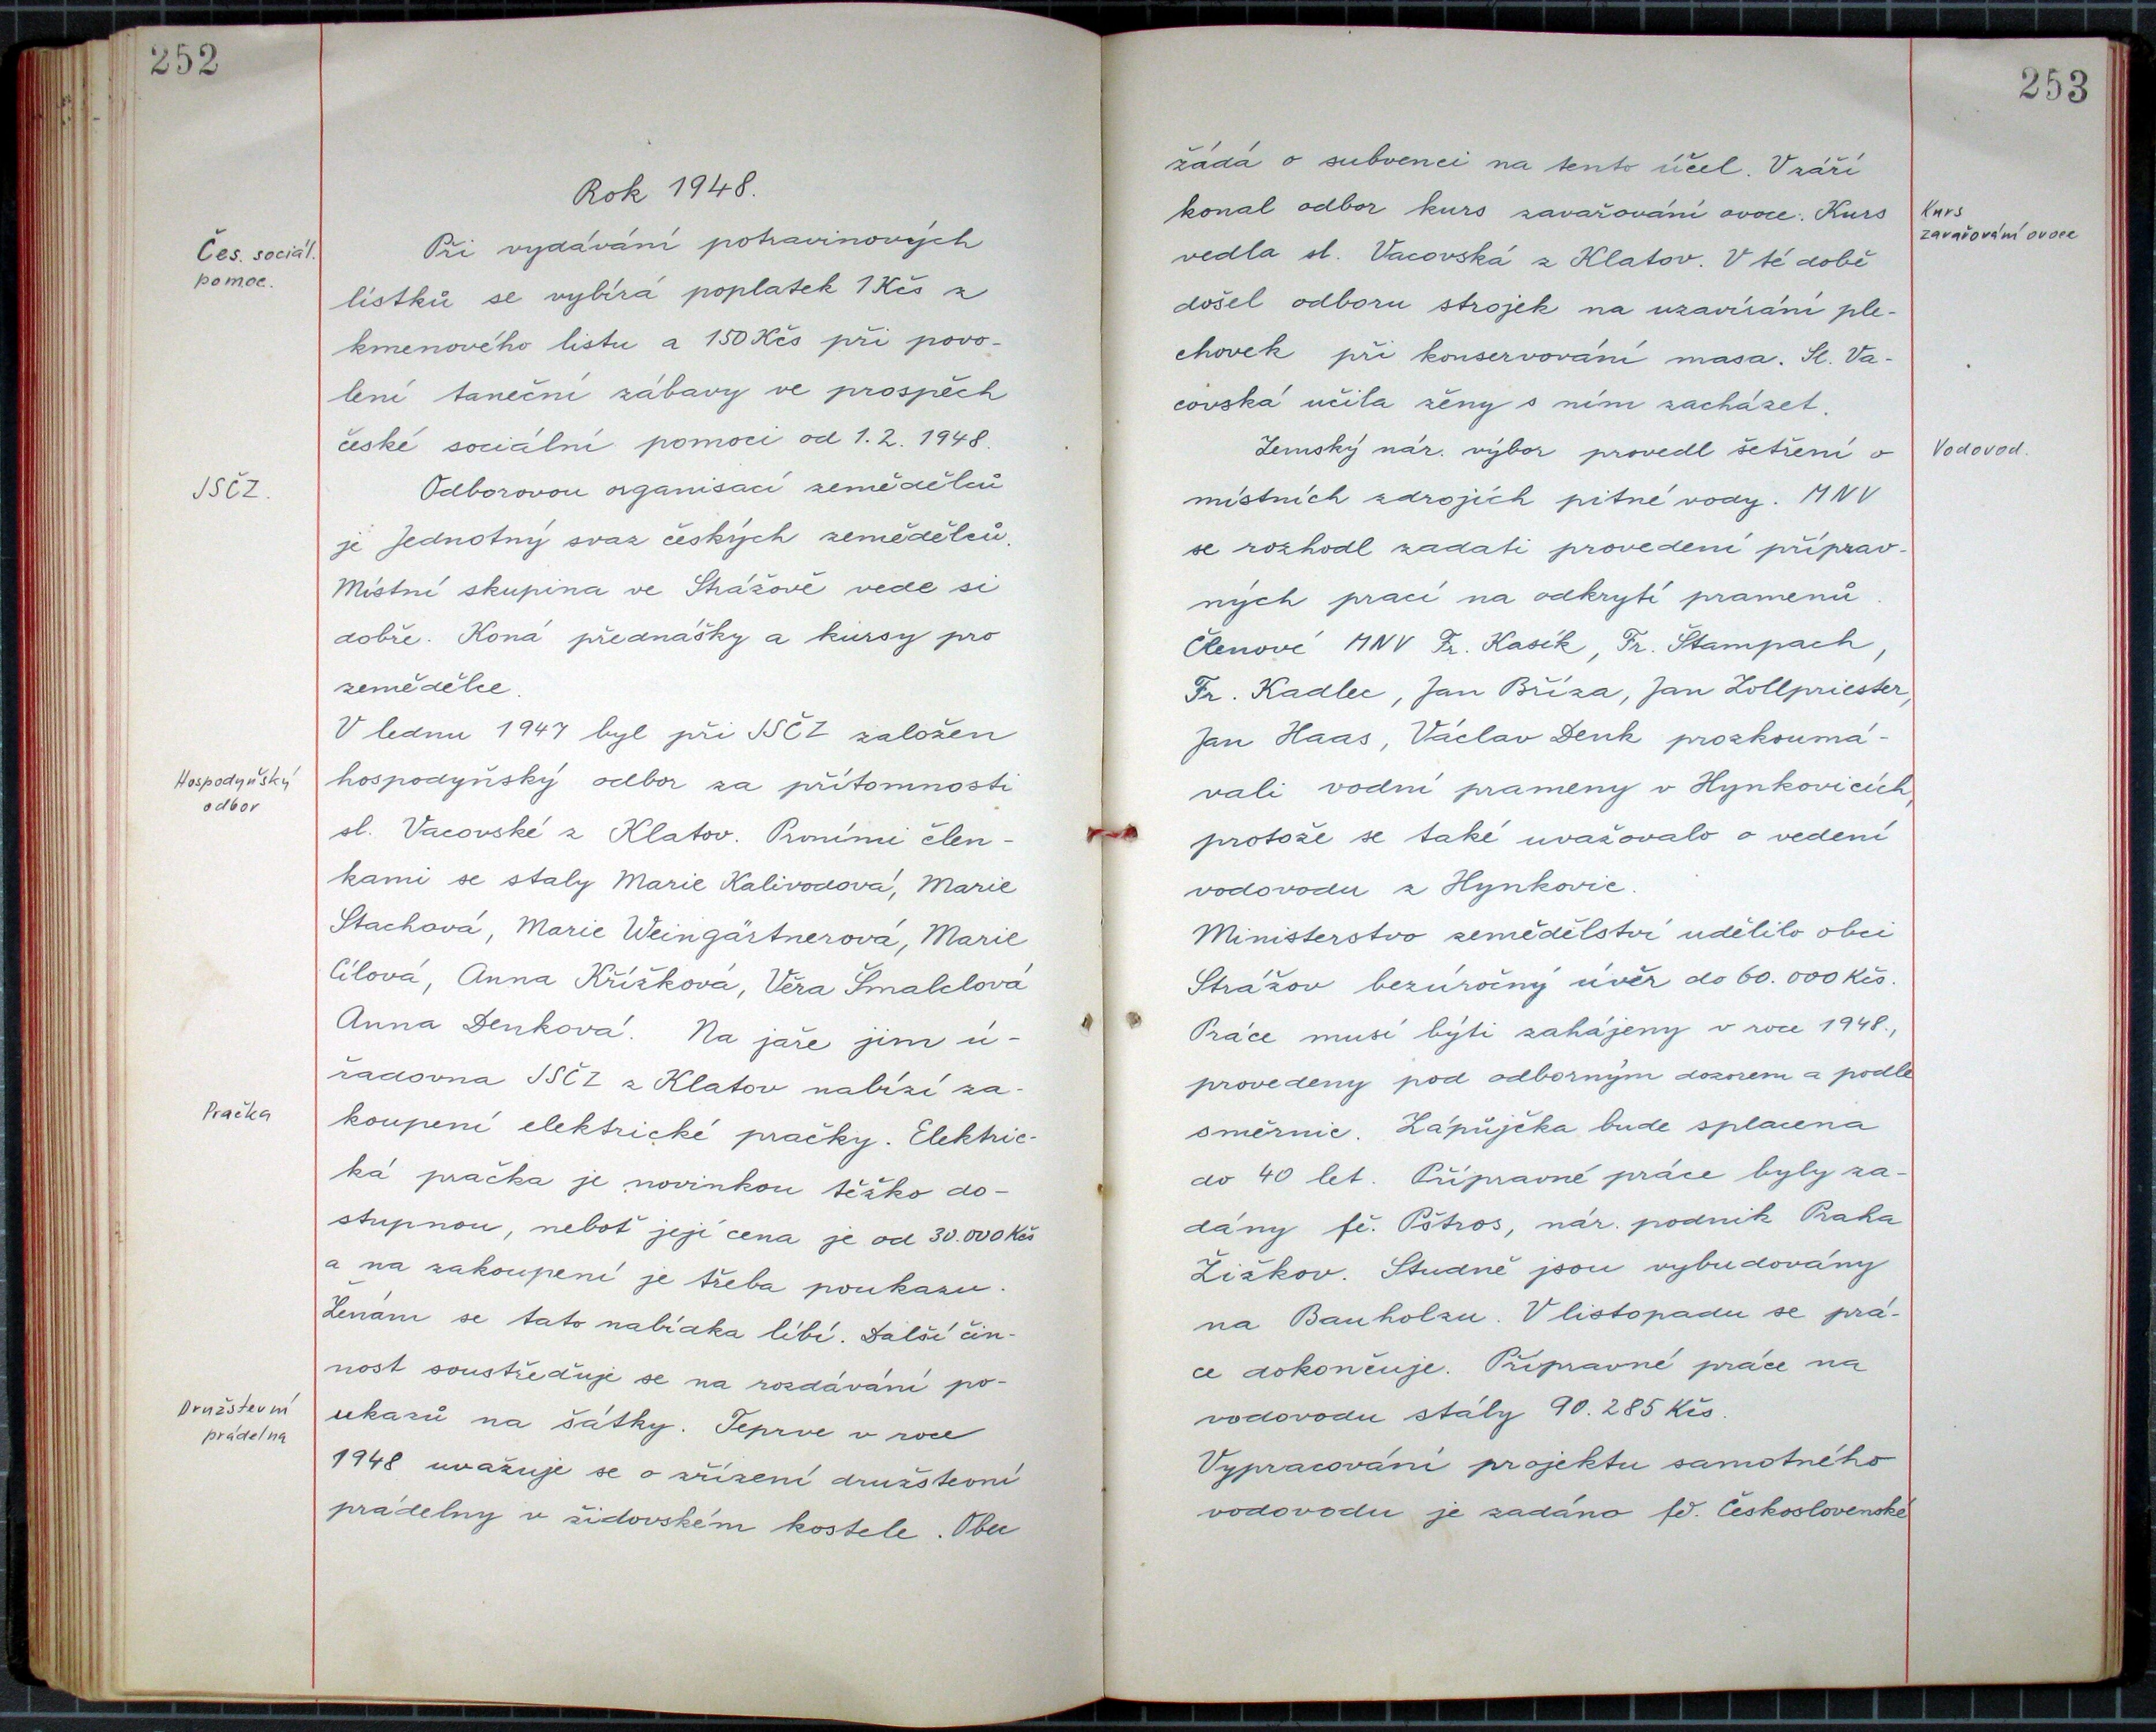 252
Rok 1948.
Čes. sociál.
pomoc.
Při vydávání potravinových
lístků se vybírá poplatek 1 Kčs z
kmenového listu a 150 Kčs při povo-
lení taneční zábavy ve prospěch
české sociální pomoci od 1. 2. 1948.
JSČZ.
Odborovou organisací zemědělců
je Jednotný svaz českých zemědělců.
Místní skupina ve Strážově vede si
dobře. Koná přednášky a kursy pro
zemědělce.
V lednu 1947 byl při JSČZ založen
Hospodyňský
odbor
hospodyňský odbor za přítomnosti
sl. Vacovské z Klatov. Prvními člen-
kami se staly Marie Kalivodová, Marie
Stachová, Marie Weingärtnerová, Marie
Cílová, Anna Křížková, Věra Šmalclová
Anna Denková. Na jaře jim ú-
řadovna JSČZ z Klatov nabízí za-
Pračka
koupení elektrické pračky. Elektric-
ká pračka je novinkou těžko do-
stupnou, neboť její cena je od 30.000 Kčs
a na zakoupení je třeba poukazu.
Ženám se tato nabídka líbí. Další čin-
nost soustřeďuje se na rozdávání po-
Družstevní
prádelna
ukazů na šátky. Teprve v roce
1948 uvažuje se o zřízení družstevní
prádelny v židovském kostele. Obec
253
žádá o subvenci na tento účel. V září
konal odbor kurs zavařování ovoce. Kurs
Kurs
zavařování ovoce
vedla sl. Vacovská z Klatov. V té době
došel odboru strojek na uzavírání ple-
chovek při konservování masa. Sl. Va-
covská učila ženy s ním zacházet.
Zemský nár. výbor provedl šetření o
Vodovod.
místních zdrojích pitné vody. MNV
se rozhodl zadati provedení příprav-
ných prací na odkrytí pramenů.
Členové MNV Fr. Kasík, Fr. Štampach,
Fr. Kadlec, Jan Bříza, Jan Zollpriester,
Jan Haas, Václav Denk prozkoumá-
vali vodní prameny v Hynkovicích,
protože se také uvažovalo o vedení
vodovodu z Hynkovic.
Ministerstvo zemědělství udělilo obci
Strážov bezúročný úvěr do 60.000 Kčs.
Práce musí býti zahájeny v roce 1948.,
provedeny pod odborným dozorem a podle
směrnic. Zápůjčka bude splacena
do 40 let. Přípravné práce byly za-
dány fě. Pštros, nár. podnik Praha
Žižkov. Studně jsou vybudovány
na Bauholzu. V listopadu se prá-
ce dokončuje. Přípravné práce na
vodovodu stály 90.285 Kčs.
Vypracování projektu samotného
vodovodu je zadáno fě. Československé